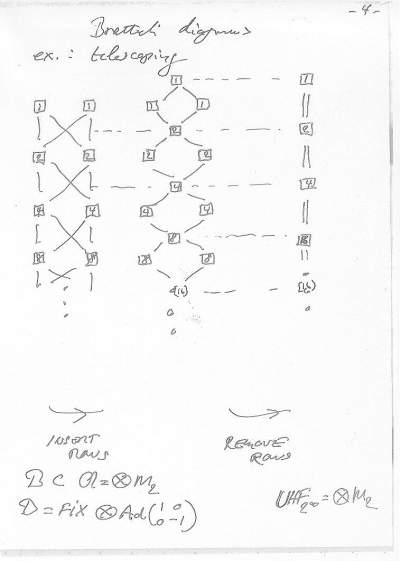 - 4 -
Bratteli diagrams
ex.: telescoping
1 1
1 1 1
1 1
2 2
2 2
2 2
4 4
4 4
4 4
8 8
8 8
8 8
(16) (16)
INSERT ROWS
REMOVE ROWS
B ⊂ A = ⊗M₂
D = Fix ⊗Ad(1 0
0 -1)
UHF₂∞ = ⊗M₂